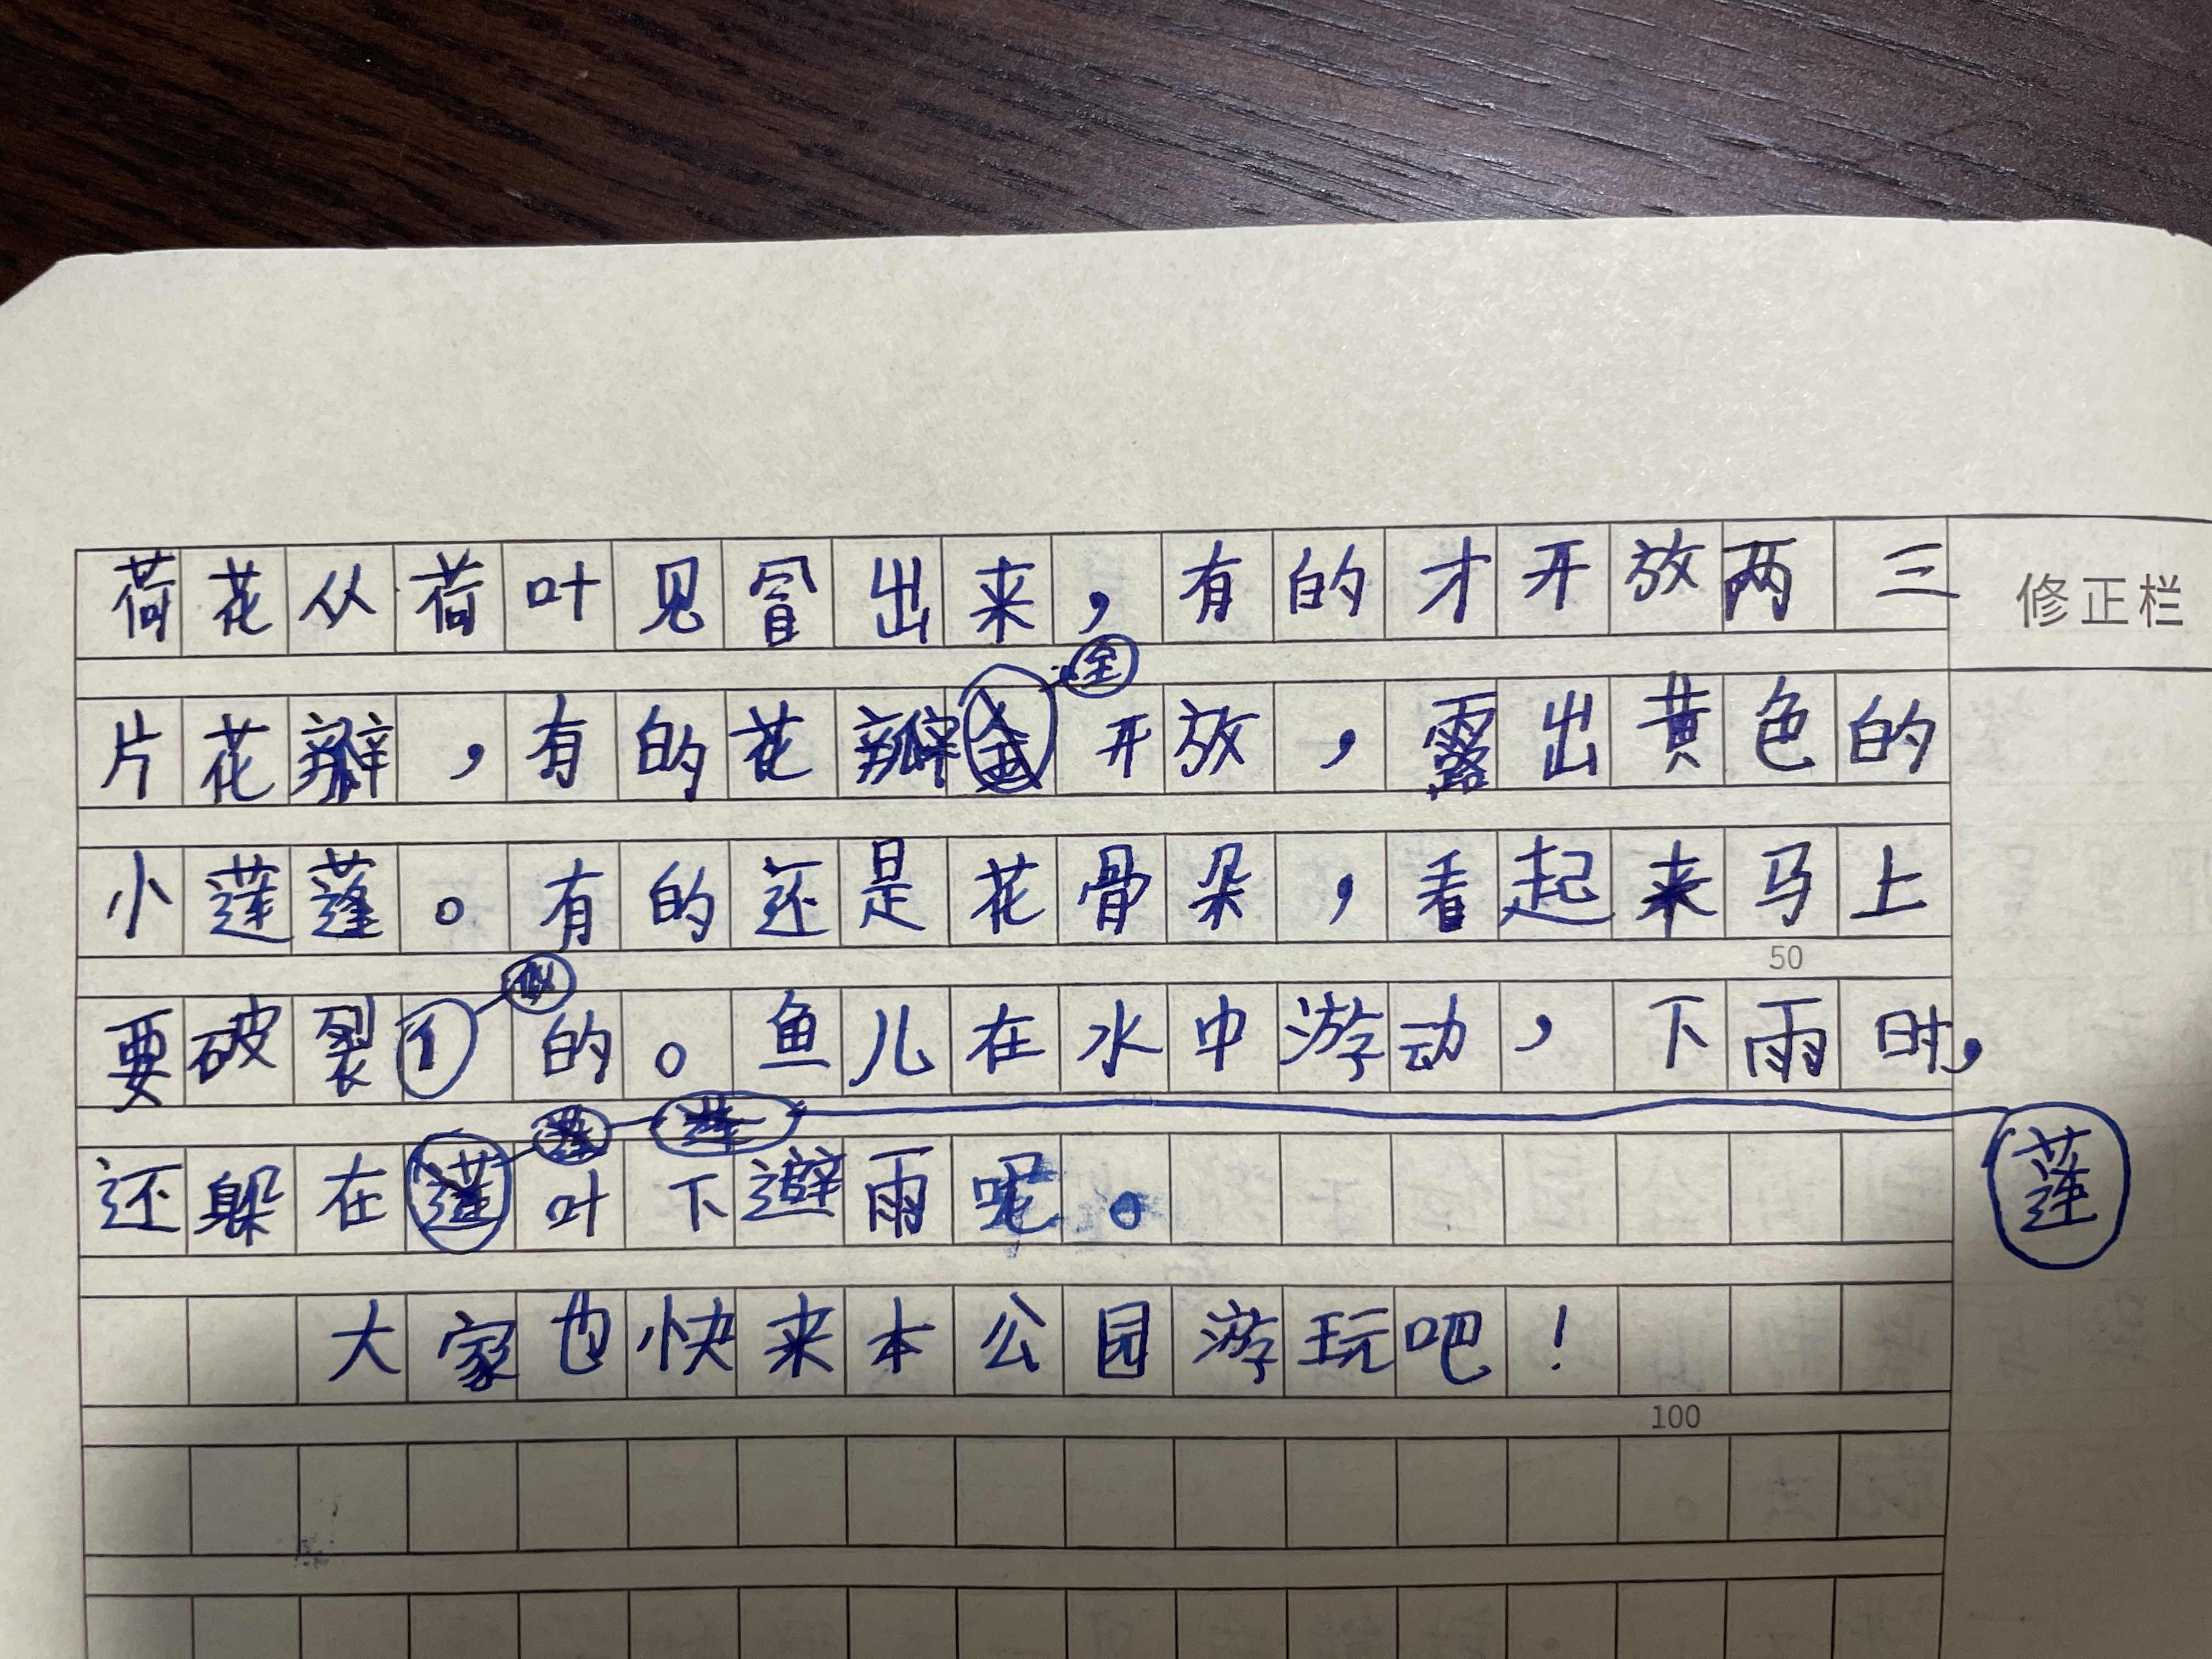 荷花从荷叶见冒出来,有的才开放两三
修正栏
全
片花瓣,有的花瓣开放,露出黄色的
小莲蓬。有的还是花骨朵,看起来马上
50
似
要破裂的。鱼儿在水中游动,下雨时,
还躲在叶下避雨呢。
莲
大家也快来本公园游玩吧!
100